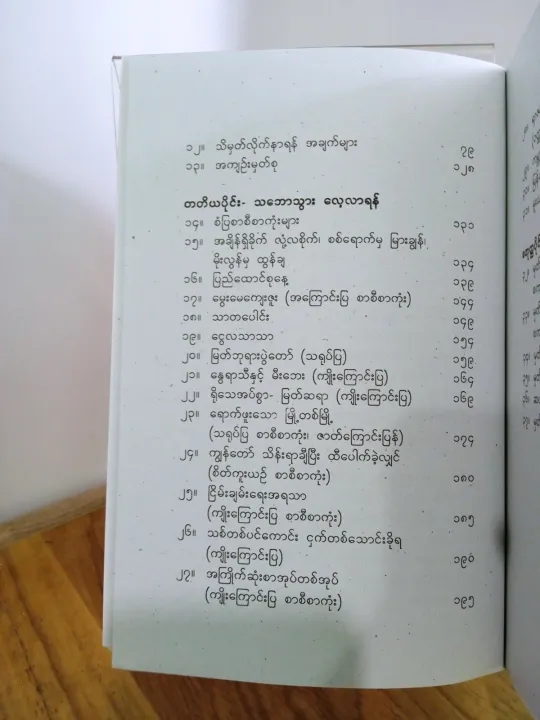 ၁၂။ သိမှတ်လိုက်နာရန် အချက်များ ၇၉
၁၃။ အကျဉ်းမှတ်စု ၁၂၈
တတိယပိုင်း- သဘောသွား လေ့လာရန်
၁၄။ စံပြစာစီစာကုံးများ ၁၃၁
၁၅။ အချိန်ရှိခိုက် လုံ့လစိုက်၊ စစ်ရောက်မှ မြားချွန်၊
မိုးလွန်မှ ထွန်ချ ၁၃၄
၁၆။ ပြည်ထောင်စုနေ့ ၁၃၉
၁၇။ မွေးမေကျေးဇူး (အကြောင်းပြ စာစီစာကုံး) ၁၄၄
၁၈။ သာတပေါင်း ၁၄၉
၁၉။ ငွေလသာသာ ၁၅၄
၂၀။ မြတ်ဘုရားပွဲတော် (သရုပ်ပြ) ၁၅၉
၂၁။ နွေရာသီနှင့် မီးဘေး (ကျိုးကြောင်းပြ) ၁၆၄
၂၂။ ရိုသေအပ်စွာ- မြတ်ဆရာ (ကျိုးကြောင်းပြ) ၁၆၉
၂၃။ ရောက်ဖူးသော မြို့တစ်မြို့
(သရုပ်ပြ စာစီစာကုံး၊ ဇာတ်ကြောင်းပြန်) ၁၇၄
၂၄။ ကျွန်တော် သိန်းရာချီပြီး ထီပေါက်ခဲ့လျှင်
(စိတ်ကူးယဉ် စာစီစာကုံး) ၁၈၀
၂၅။ ငြိမ်းချမ်းရေးအရသာ
(ကျိုးကြောင်းပြ စာစီစာကုံး) ၁၈၅
၂၆။ သစ်တစ်ပင်ကောင်း ငှက်တစ်သောင်းခိုရ
(ကျိုးကြောင်းပြ) ၁၉၀
၂၇။ အကြိုက်ဆုံးစာအုပ်တစ်အုပ်
(ကျိုးကြောင်းပြ စာစီစာကုံး) ၁၉၅